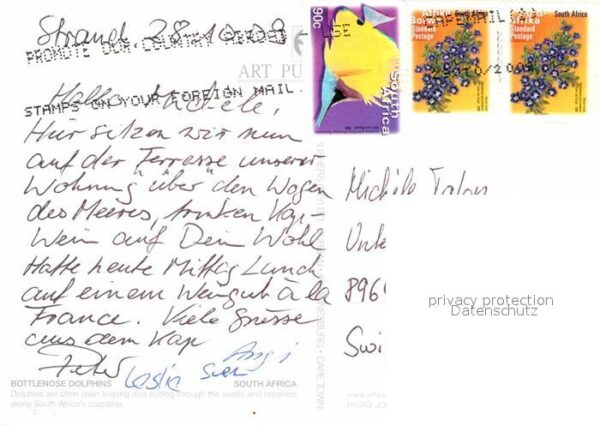 Strand 28.10.
PROMOTE OUR COUNTRY
STAMPS ON YOUR FOREIGN MAIL
ART PU
90c
South Africa
Standard Postage
South Africa
Standard Postage
Hallo
Hier sitzen wir nun
auf der Terrasse unserer
Wohnung "über" den Wogen
des Meeres, trinken Kap-
Wein auf Dein Wohl
Hatte heute Mittag Lunch
auf einem Weingut à la
France. Viele Grüsse
aus dem Kap
Peter
Leslie Sven Angi
Michèle
Unte
896
Swi
privacy protection
Datenschutz
BOTTLENOSE DOLPHINS SOUTH AFRICA
Dolphins are often seen leaping and surfing through the swells and breakers
along South Africa's coastline.
CAPE TOWN